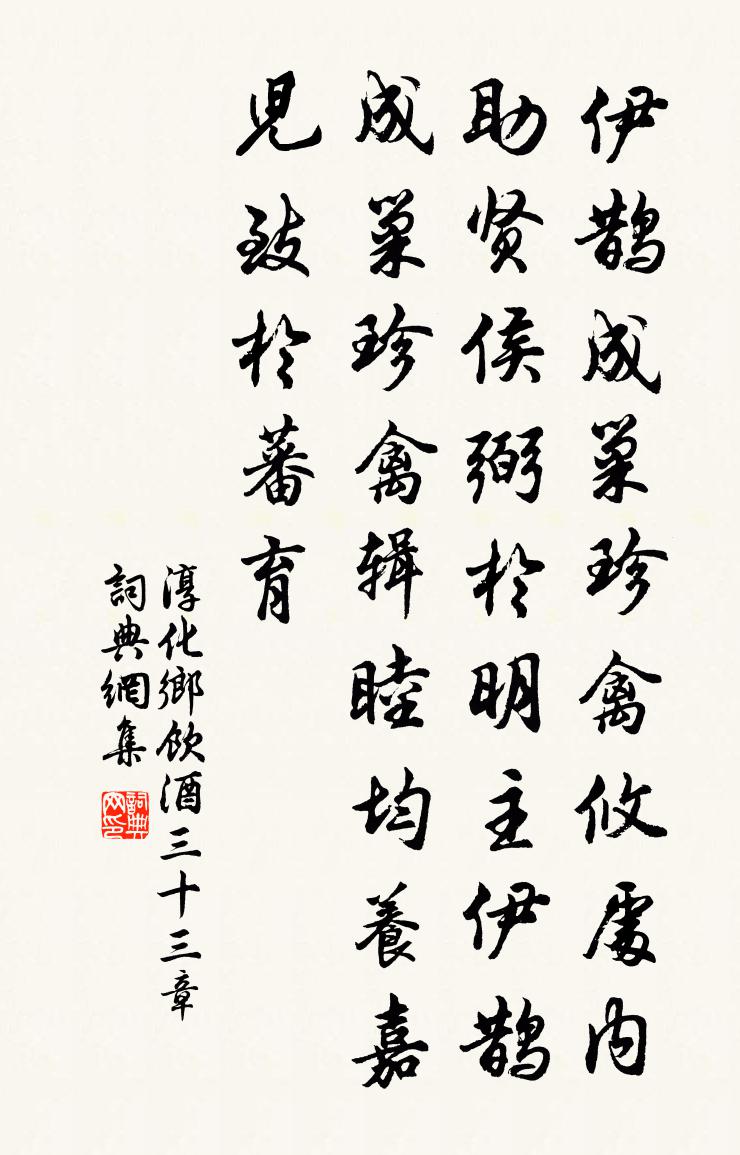 伊鹊成巢珍禽攸處内
助贤侯弼於明主伊鹊
成巢珍禽辑睦均養嘉
児致於蕃育
淳化鄉飲酒三十三章
詞典網集
詞典网印